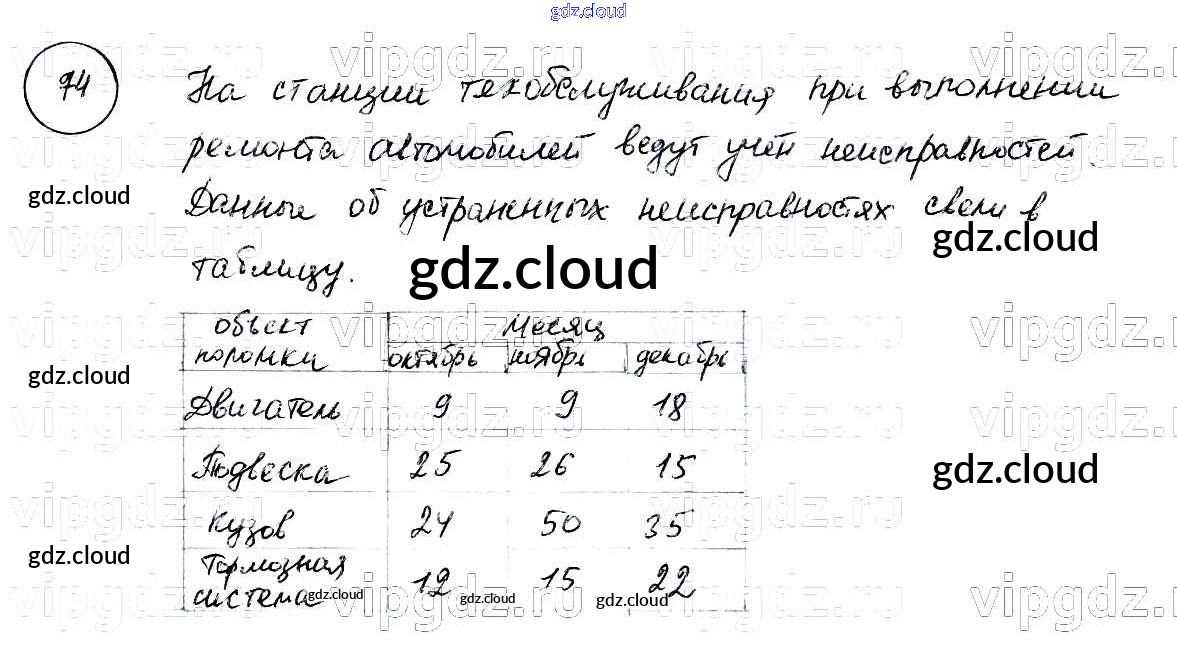 gdz.cloud
74
На станции техобслуживания при выполнении
ремонта автомобилей ведут учёт неисправностей.
Данные об устраненных неисправностях свели в
таблицу.
объект поломки | Месяц
октябрь | ноябрь | декабрь
Двигатель 9 9 18
Подвеска 25 26 15
Кузов 24 50 35
Тормозная система 12 15 22
gdz.cloud
gdz.cloud
gdz.cloud
gdz.cloud
gdz.cloud
gdz.cloud
gdz.cloud
gdz.cloud
gdz.cloud
vipgdz.ru